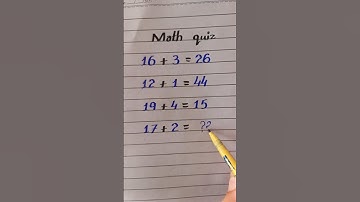 Math quiz
16 + 3 = 26
12 + 1 = 44
19 + 4 = 15
17 + 2 = ??